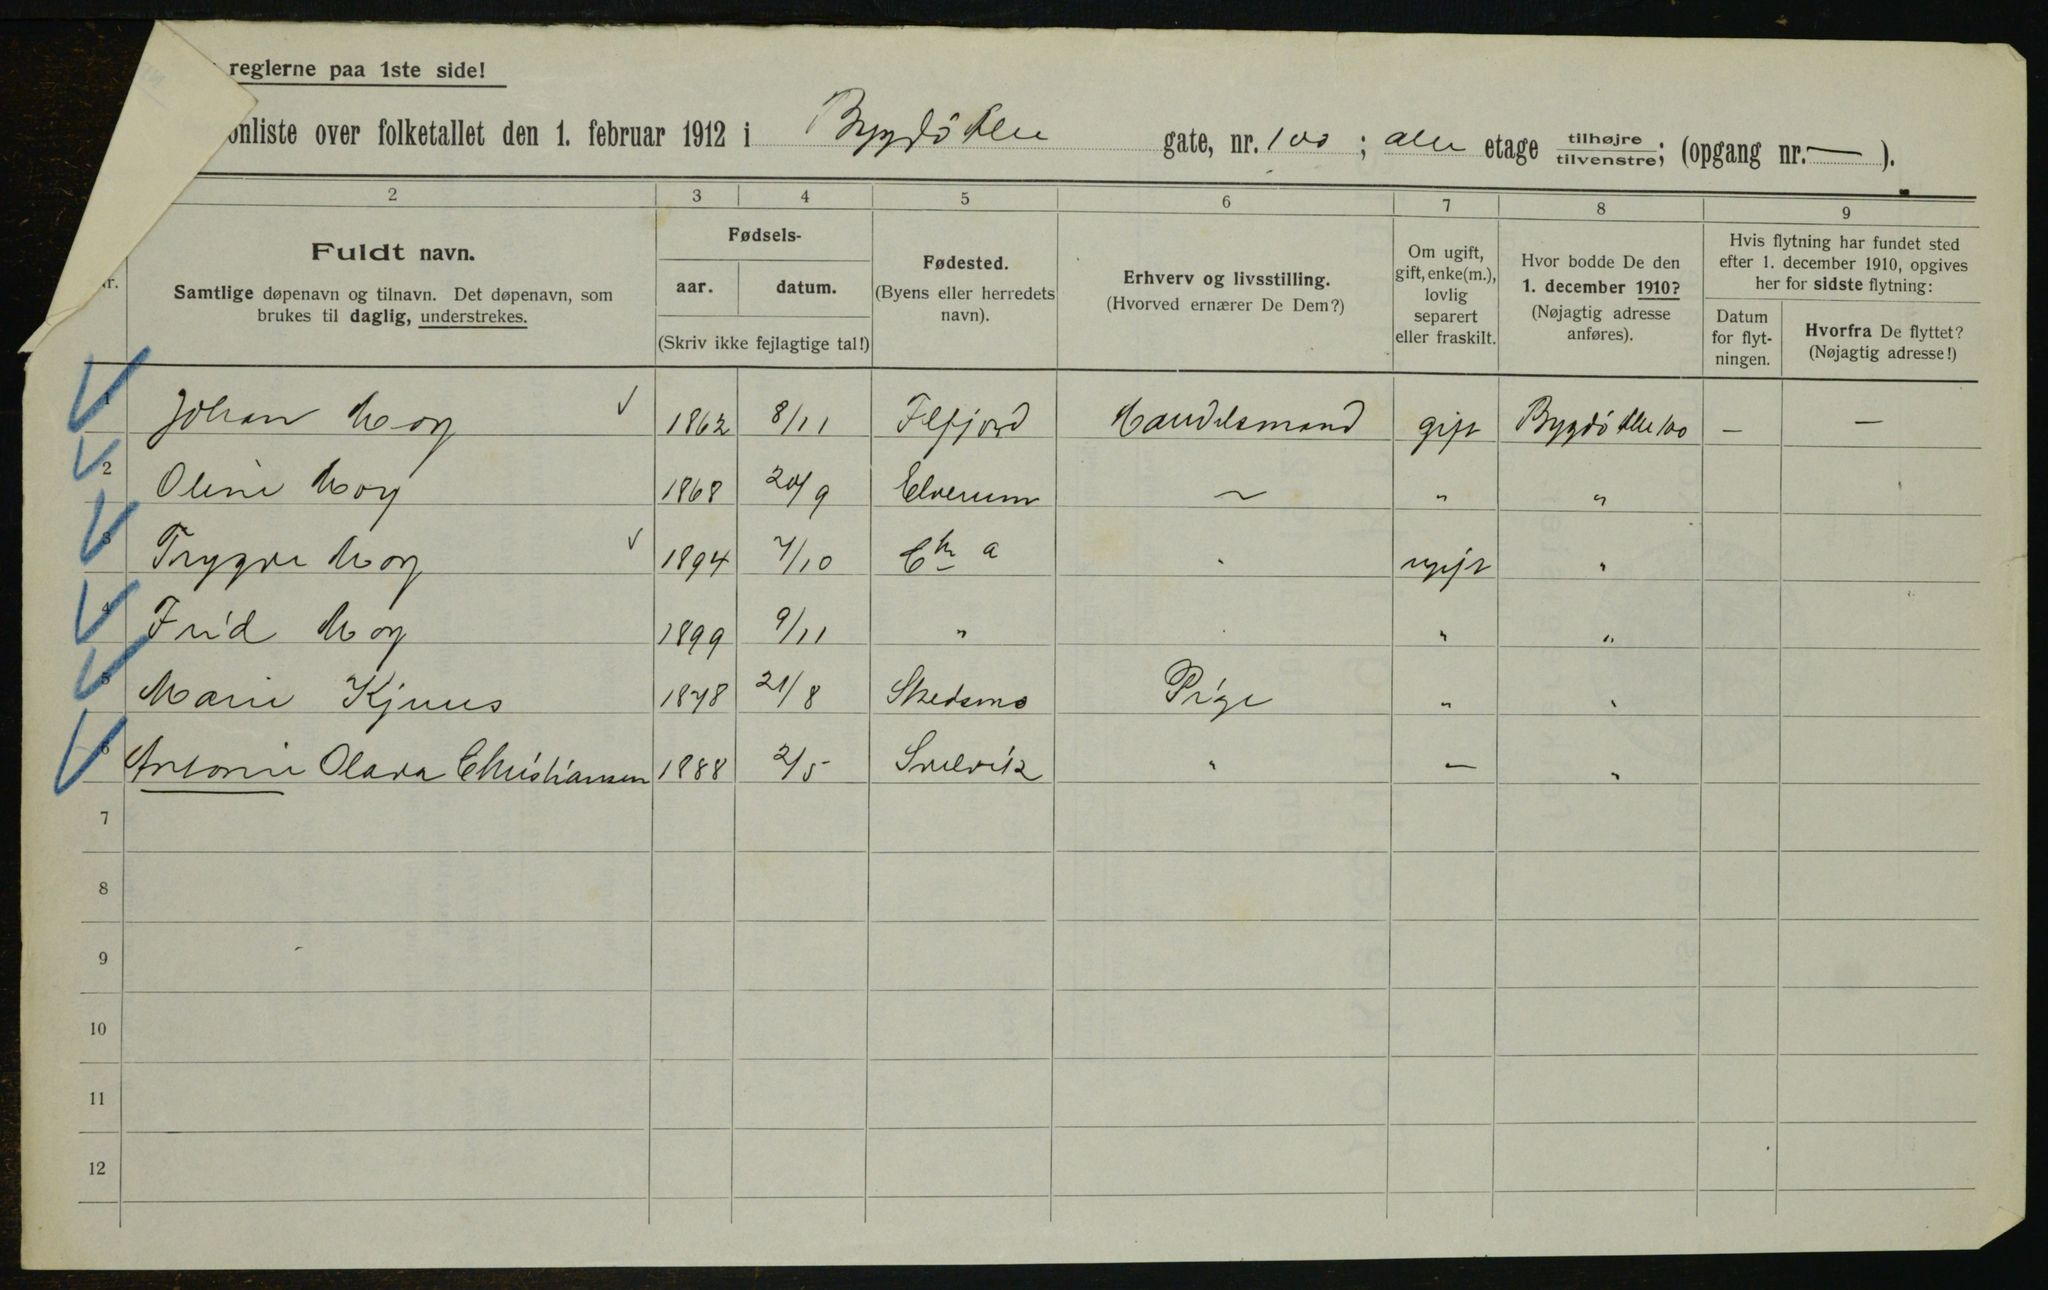 reglerne paa 1ste side!
onliste over folketallet den 1. februar 1912 i Bygdö Alle gate, nr. 100 ; alle etage tilhøjre/tilvenstre; (opgang nr. — ).
2 3 4 5 6 7 8 9
r.
Fuldt navn.
Samtlige døpenavn og tilnavn. Det døpenavn, som
brukes til daglig, understrekes.
Fødsels-
aar. datum.
(Skriv ikke fejlagtige tal!)
Fødested.
(Byens eller herredets
navn).
Erhverv og livsstilling.
(Hvorved ernærer De Dem?)
Om ugift,
gift, enke(m.),
lovlig
separert
eller fraskilt.
Hvor bodde De den
1. december 1910?
(Nøjagtig adresse
anføres).
Hvis flytning har fundet sted
efter 1. december 1910, opgives
her for sidste flytning:
Datum
for flyt-
ningen.
Hvorfra De flyttet?
(Nøjagtig adresse!)
1 Johan 1862 8/11 Handelsmand gift Bygdö Alle 100 — —
2 Oline 1868 20/9 Elverum ~ " "
3 Trygve 1894 7/10 Chr a " ugift "
4 Frid 1899 9/11 " " " "
5 Marie Kjuus 1878 21/8 Skedsmo Pige " "
6 Antonie Olava Christiansen 1888 2/5 Svelvik " — "
7
8
9
10
11
12